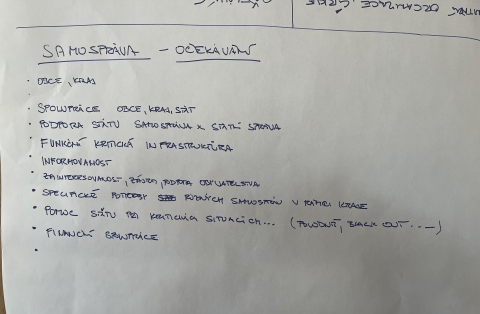 SAMOSPRÁVA – OČEKÁVÁNÍ
· OBCE, KRAJ
· SPOLUPRÁCE OBCE, KRAJ, STÁT
· PODPORA STÁTU, SAMOSPRÁVA X STÁTNÍ SPRÁVA
· FUNKČNÍ KRITICKÁ INFRASTRUKTÚRA
· INFORMOVANOST
· ZAINTERESOVANOST, ZÁJEM, PODPORA OBYVATELSTVA
· SPECIFICKÉ POTŘEBY RŮZNÝCH SAMOSPRÁV V RÁMCI KRAJE
· POMOC STÁTU PŘI KRITICKÝCH SITUACÍCH... (POVODNĚ, BLACK OUT...)
· FINANČNÍ